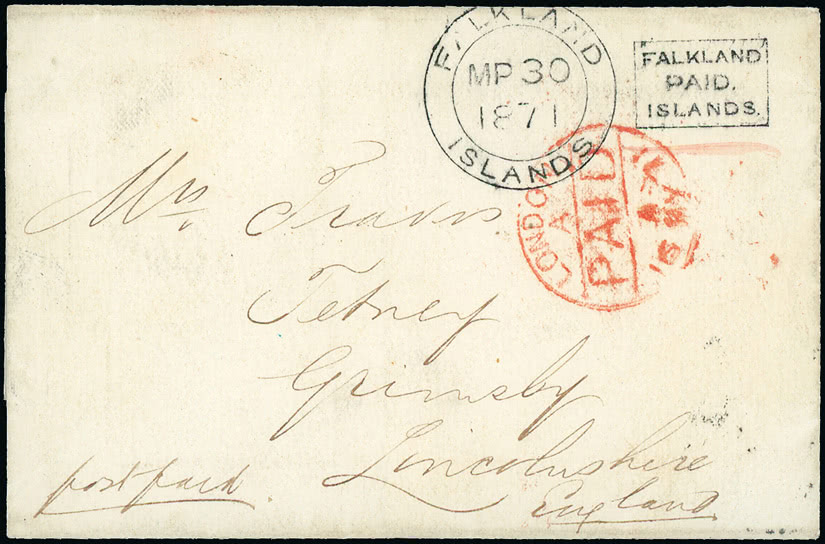 FALKLAND
MR30
1871
ISLANDS
FALKLAND
PAID.
ISLANDS.
LONDON
A
PAID
Mrs Travis.
Tetney
Grimsby
Lincolnshire
England
post paid.